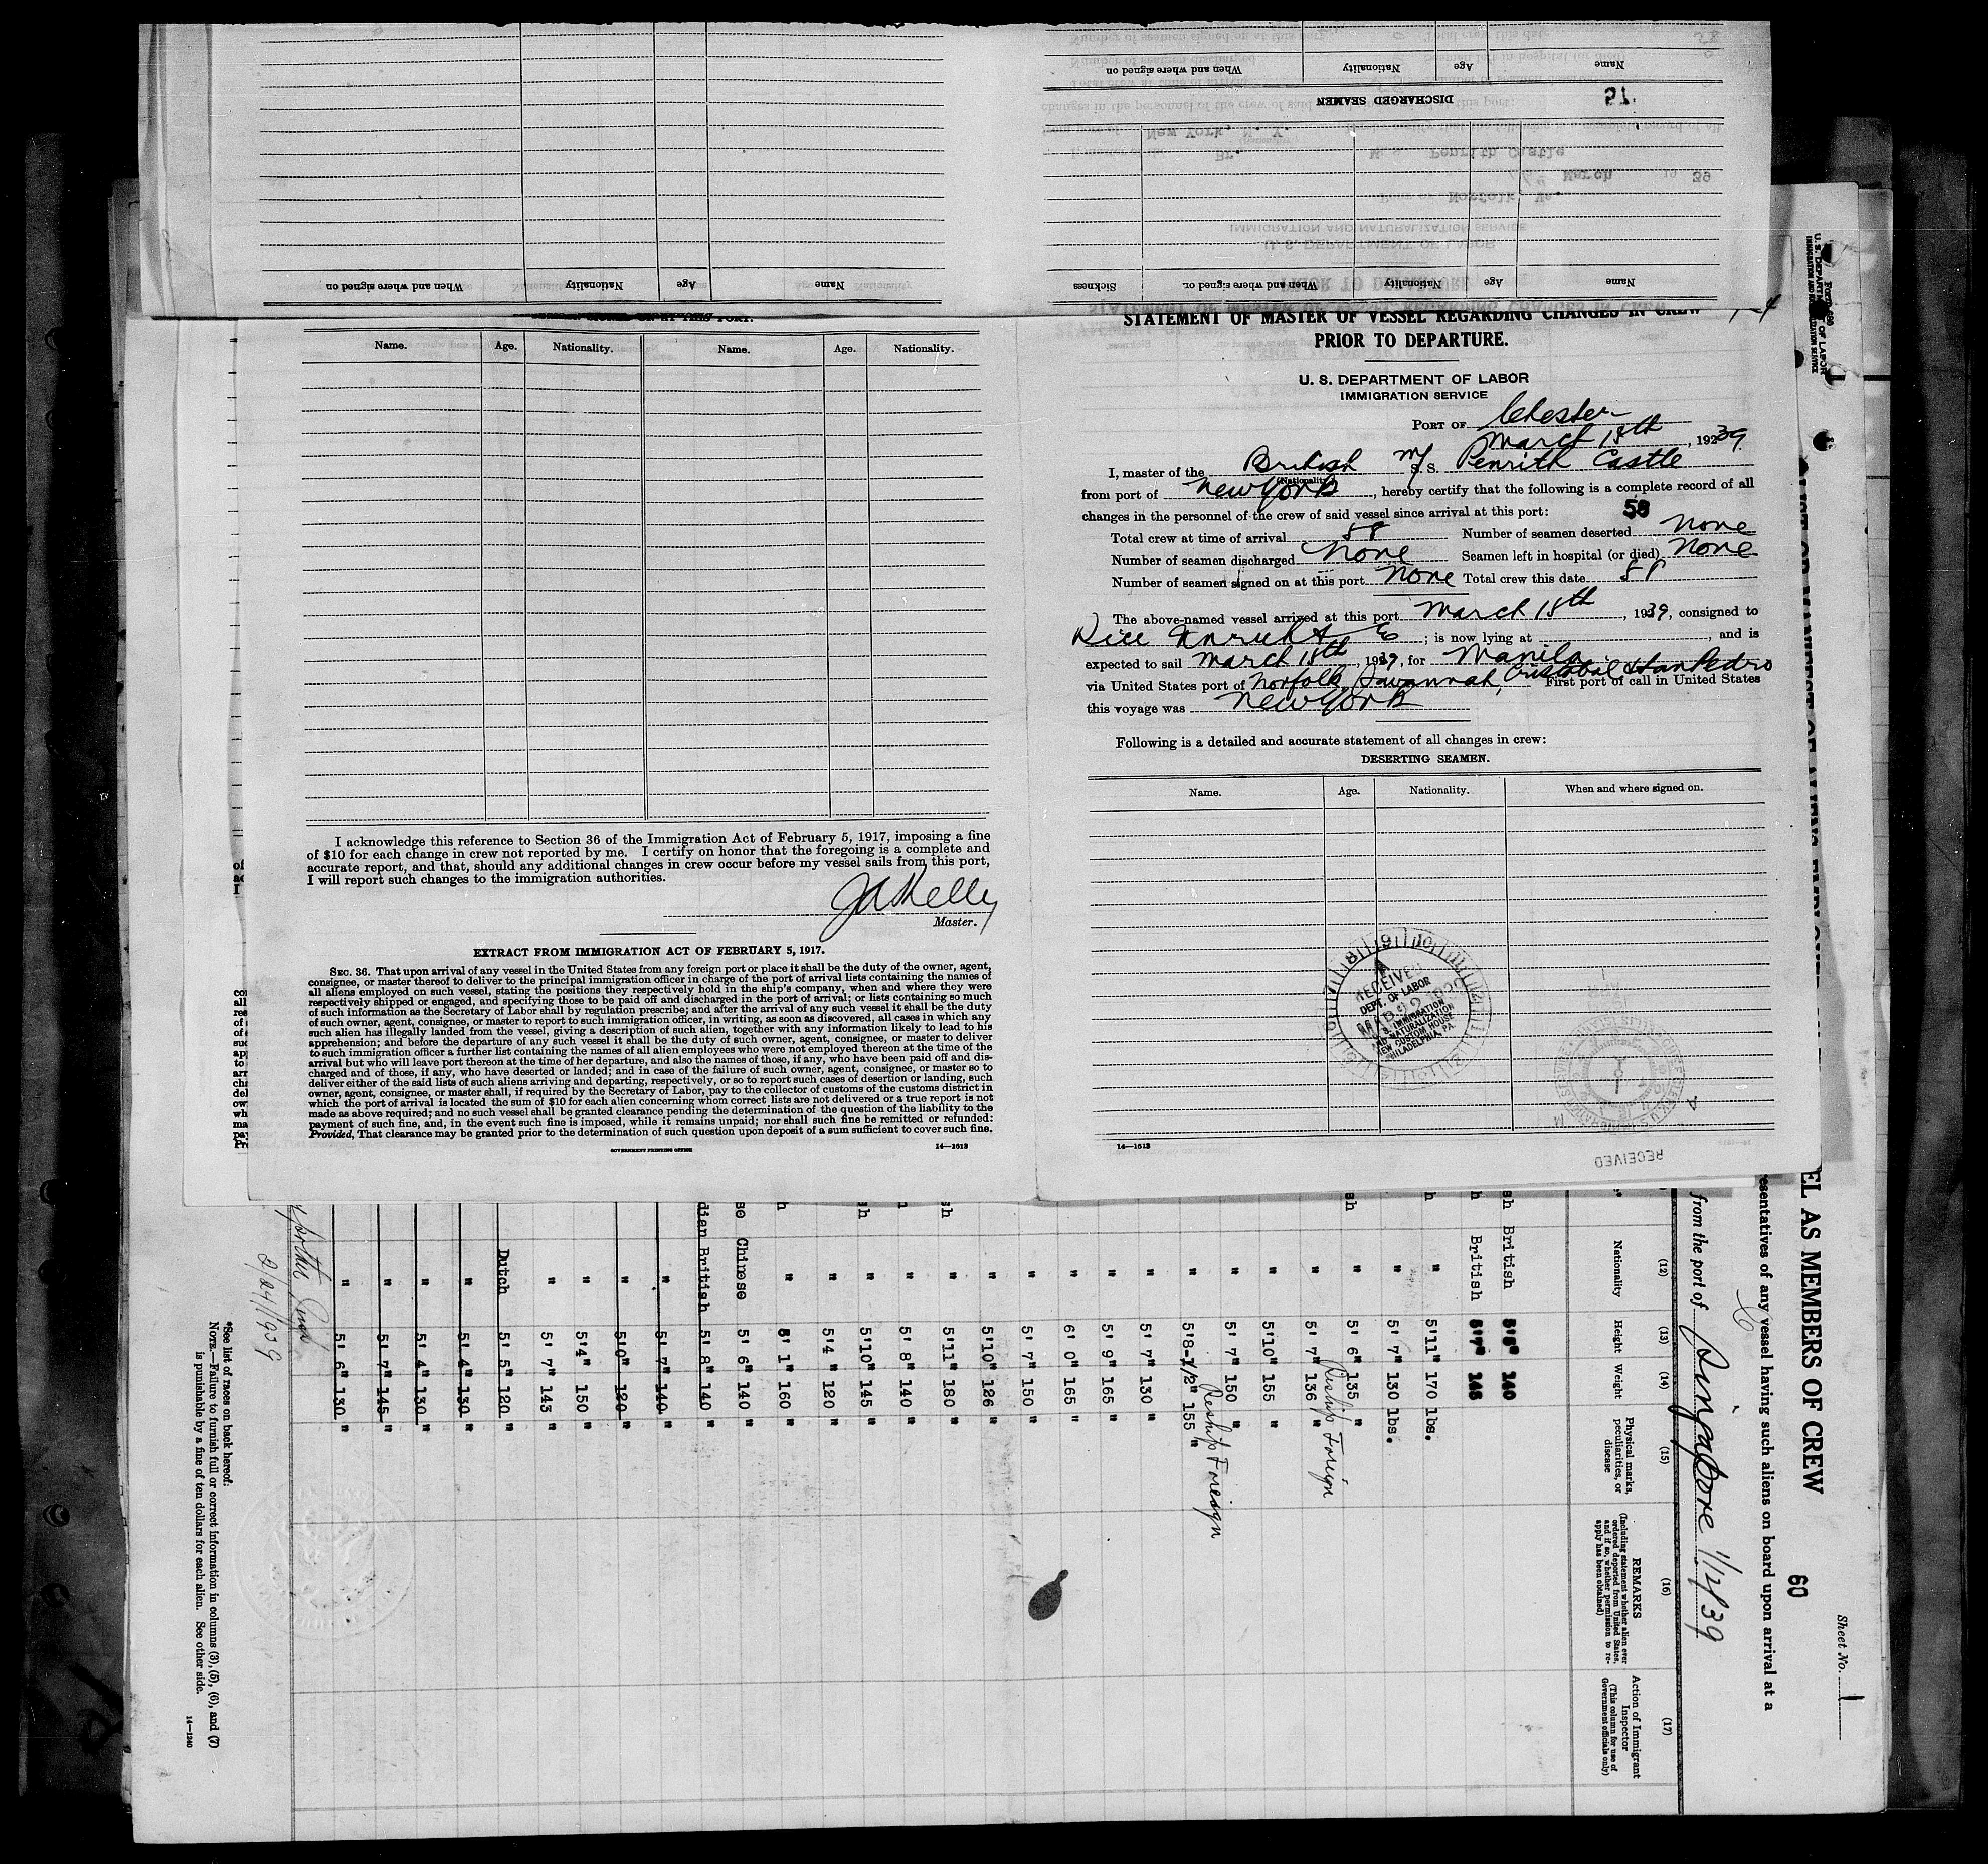 When and where signed on
Nationality
Age
Name
57
DISCHARGED SEAMEN
When and where signed on
Nationality
Age
Name
Sickness
When and where signed or.
Nationality
Age
Name
New York, N. Y.
Br.
Penrith Castle
March 39
Norfolk, Va.
U. S. DEPARTMENT OF LABOR
IMMIGRATION AND NATURALIZATION SERVICE
Name. Age. Nationality. Name. Age. Nationality.
I acknowledge this reference to Section 36 of the Immigration Act of February 5, 1917, imposing a fine
of $10 for each change in crew not reported by me. I certify on honor that the foregoing is a complete and
accurate report, and that, should any additional changes in crew occur before my vessel sails from this port,
I will report such changes to the immigration authorities.
JA Kelly
Master.
EXTRACT FROM IMMIGRATION ACT OF FEBRUARY 5, 1917.
SEC. 36. That upon arrival of any vessel in the United States from any foreign port or place it shall be the duty of the owner, agent,
consignee, or master thereof to deliver to the principal immigration officer in charge of the port of arrival lists containing the names of
all aliens employed on such vessel, stating the positions they respectively hold in the ship's company, when and where they were
respectively shipped or engaged, and specifying those to be paid off and discharged in the port of arrival; or lists containing so much
of such information as the Secretary of Labor shall by regulation prescribe; and after the arrival of any such vessel it shall be the duty
of such owner, agent, consignee, or master to report to such immigration officer, in writing, as soon as discovered, all cases in which any
such alien has illegally landed from the vessel, giving a description of such alien, together with any information likely to lead to his
apprehension; and before the departure of any such vessel it shall be the duty of such owner, agent, consignee, or master to deliver
to such immigration officer a further list containing the names of all alien employees who were not employed thereon at the time of the
arrival but who will leave port thereon at the time of her departure, and also the names of those, if any, who have been paid off and dis-
charged and of those, if any, who have deserted or landed; and in case of the failure of such owner, agent, consignee, or master so to
deliver either of the said lists of such aliens arriving and departing, respectively, or so to report such cases of desertion or landing, such
owner, agent, consignee, or master shall, if required by the Secretary of Labor, pay to the collector of customs of the customs district in
which the port of arrival is located the sum of $10 for each alien concerning whom correct lists are not delivered or a true report is not
made as above required; and no such vessel shall be granted clearance pending the determination of the question of the liability to the
payment of such fine, and, in the event such fine is imposed, while it remains unpaid; nor shall such fine be remitted or refunded:
Provided, That clearance may be granted prior to the determination of such question upon deposit of a sum sufficient to cover such fine.
GOVERNMENT PRINTING OFFICE 14—1613
STATEMENT OF MASTER OF VESSEL REGARDING CHANGES IN CREW
PRIOR TO DEPARTURE.
U. S. DEPARTMENT OF LABOR
IMMIGRATION SERVICE
PORT OF Chester
March 18th, 1939
I, master of the British M/S. S. Penrith Castle
(Nationality)
from port of New York, hereby certify that the following is a complete record of all
changes in the personnel of the crew of said vessel since arrival at this port: 58
Total crew at time of arrival 58 Number of seamen deserted none
Number of seamen discharged None Seamen left in hospital (or died) None
Number of seamen signed on at this port None Total crew this date 58
The above-named vessel arrived at this port March 18th, 1939, consigned to
; is now lying at , and is
expected to sail March 18th, 1939, for Manila
via United States port of Norfolk, Savannah, Cristobal & San Pedro First port of call in United States
this voyage was New York
Following is a detailed and accurate statement of all changes in crew:
DESERTING SEAMEN.
Name. Age. Nationality. When and where signed on.
RECEIVED
DEPT. OF LABOR
IMMIGRATION
AND NATURALIZATION
NEW CUSTOM HOUSE
PHILADELPHIA, PA.
14—1613
RECEIVED
Sheet No. 1
60
EL AS MEMBERS OF CREW
resentatives of any vessel having such aliens on board upon arrival at a
from the port of Singapore 1/12/39
(12) (13) (14) (15) (16) (17)
Nationality Height Weight Physical marks, peculiarities, or disease
REMARKS
(Including statement whether alien ever ordered deported from United States, and if so, whether permission to re-apply has been obtained)
Action of Immigrant Inspector
(This column for use of Government officials only)
sh British 5'8" 140
h British 5'7" 145
h " 5'11" 170 lbs.
" 5' 7" 130 lbs.
sh " 5' 6" 135 "
" 5' 7" 136 " Reship Foreign
" 5'10" 155 "
" 5' 7" 150 "
" 5'8-1/2" 155 " Reship Foreign
" 5' 7" 130 "
" 5' 9" 165 "
" 6' 0" 165 "
" 5' 7" 150 "
" 5'10" 126 "
sh " 5'11" 180 "
" 5' 8" 140 "
sh " 5'10" 145 "
" 5'4 " 120 "
h " 5' 1" 160 "
se Chinese 5' 6" 140 "
dian British 5' 8" 140 "
" 5' 7" 140 "
" 5'0" 120 "
" 5'4" 150 "
" 5' 7" 143 "
Dutch 5' 5" 120 "
" 5' 4" 130 "
" 5' 4" 130 "
" 5' 7" 145 "
" 5' 6" 130 "
2/24/1939
*See list of races on back hereof.
NOTE.—Failure to furnish full or correct information in columns (3), (5), (6), and (7)
is punishable by a fine of ten dollars for each alien. See other side.
14—1240